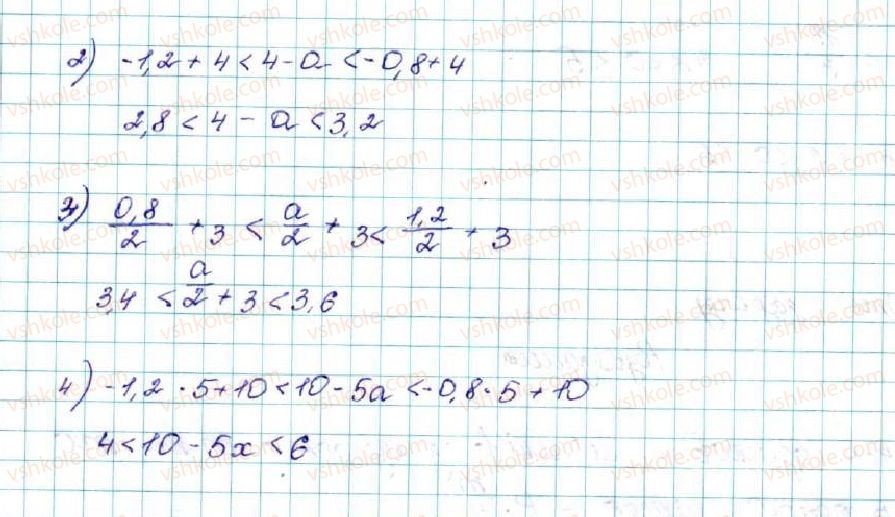 2) -1,2 + 4 < 4 - a < -0,8 + 4
2,8 < 4 - a < 3,2
3) 0,8/2 + 3 < a/2 + 3 < 1,2/2 + 3
3,4 < a/2 + 3 < 3,6
4) -1,2 · 5 + 10 < 10 - 5a < -0,8 · 5 + 10
4 < 10 - 5x < 6